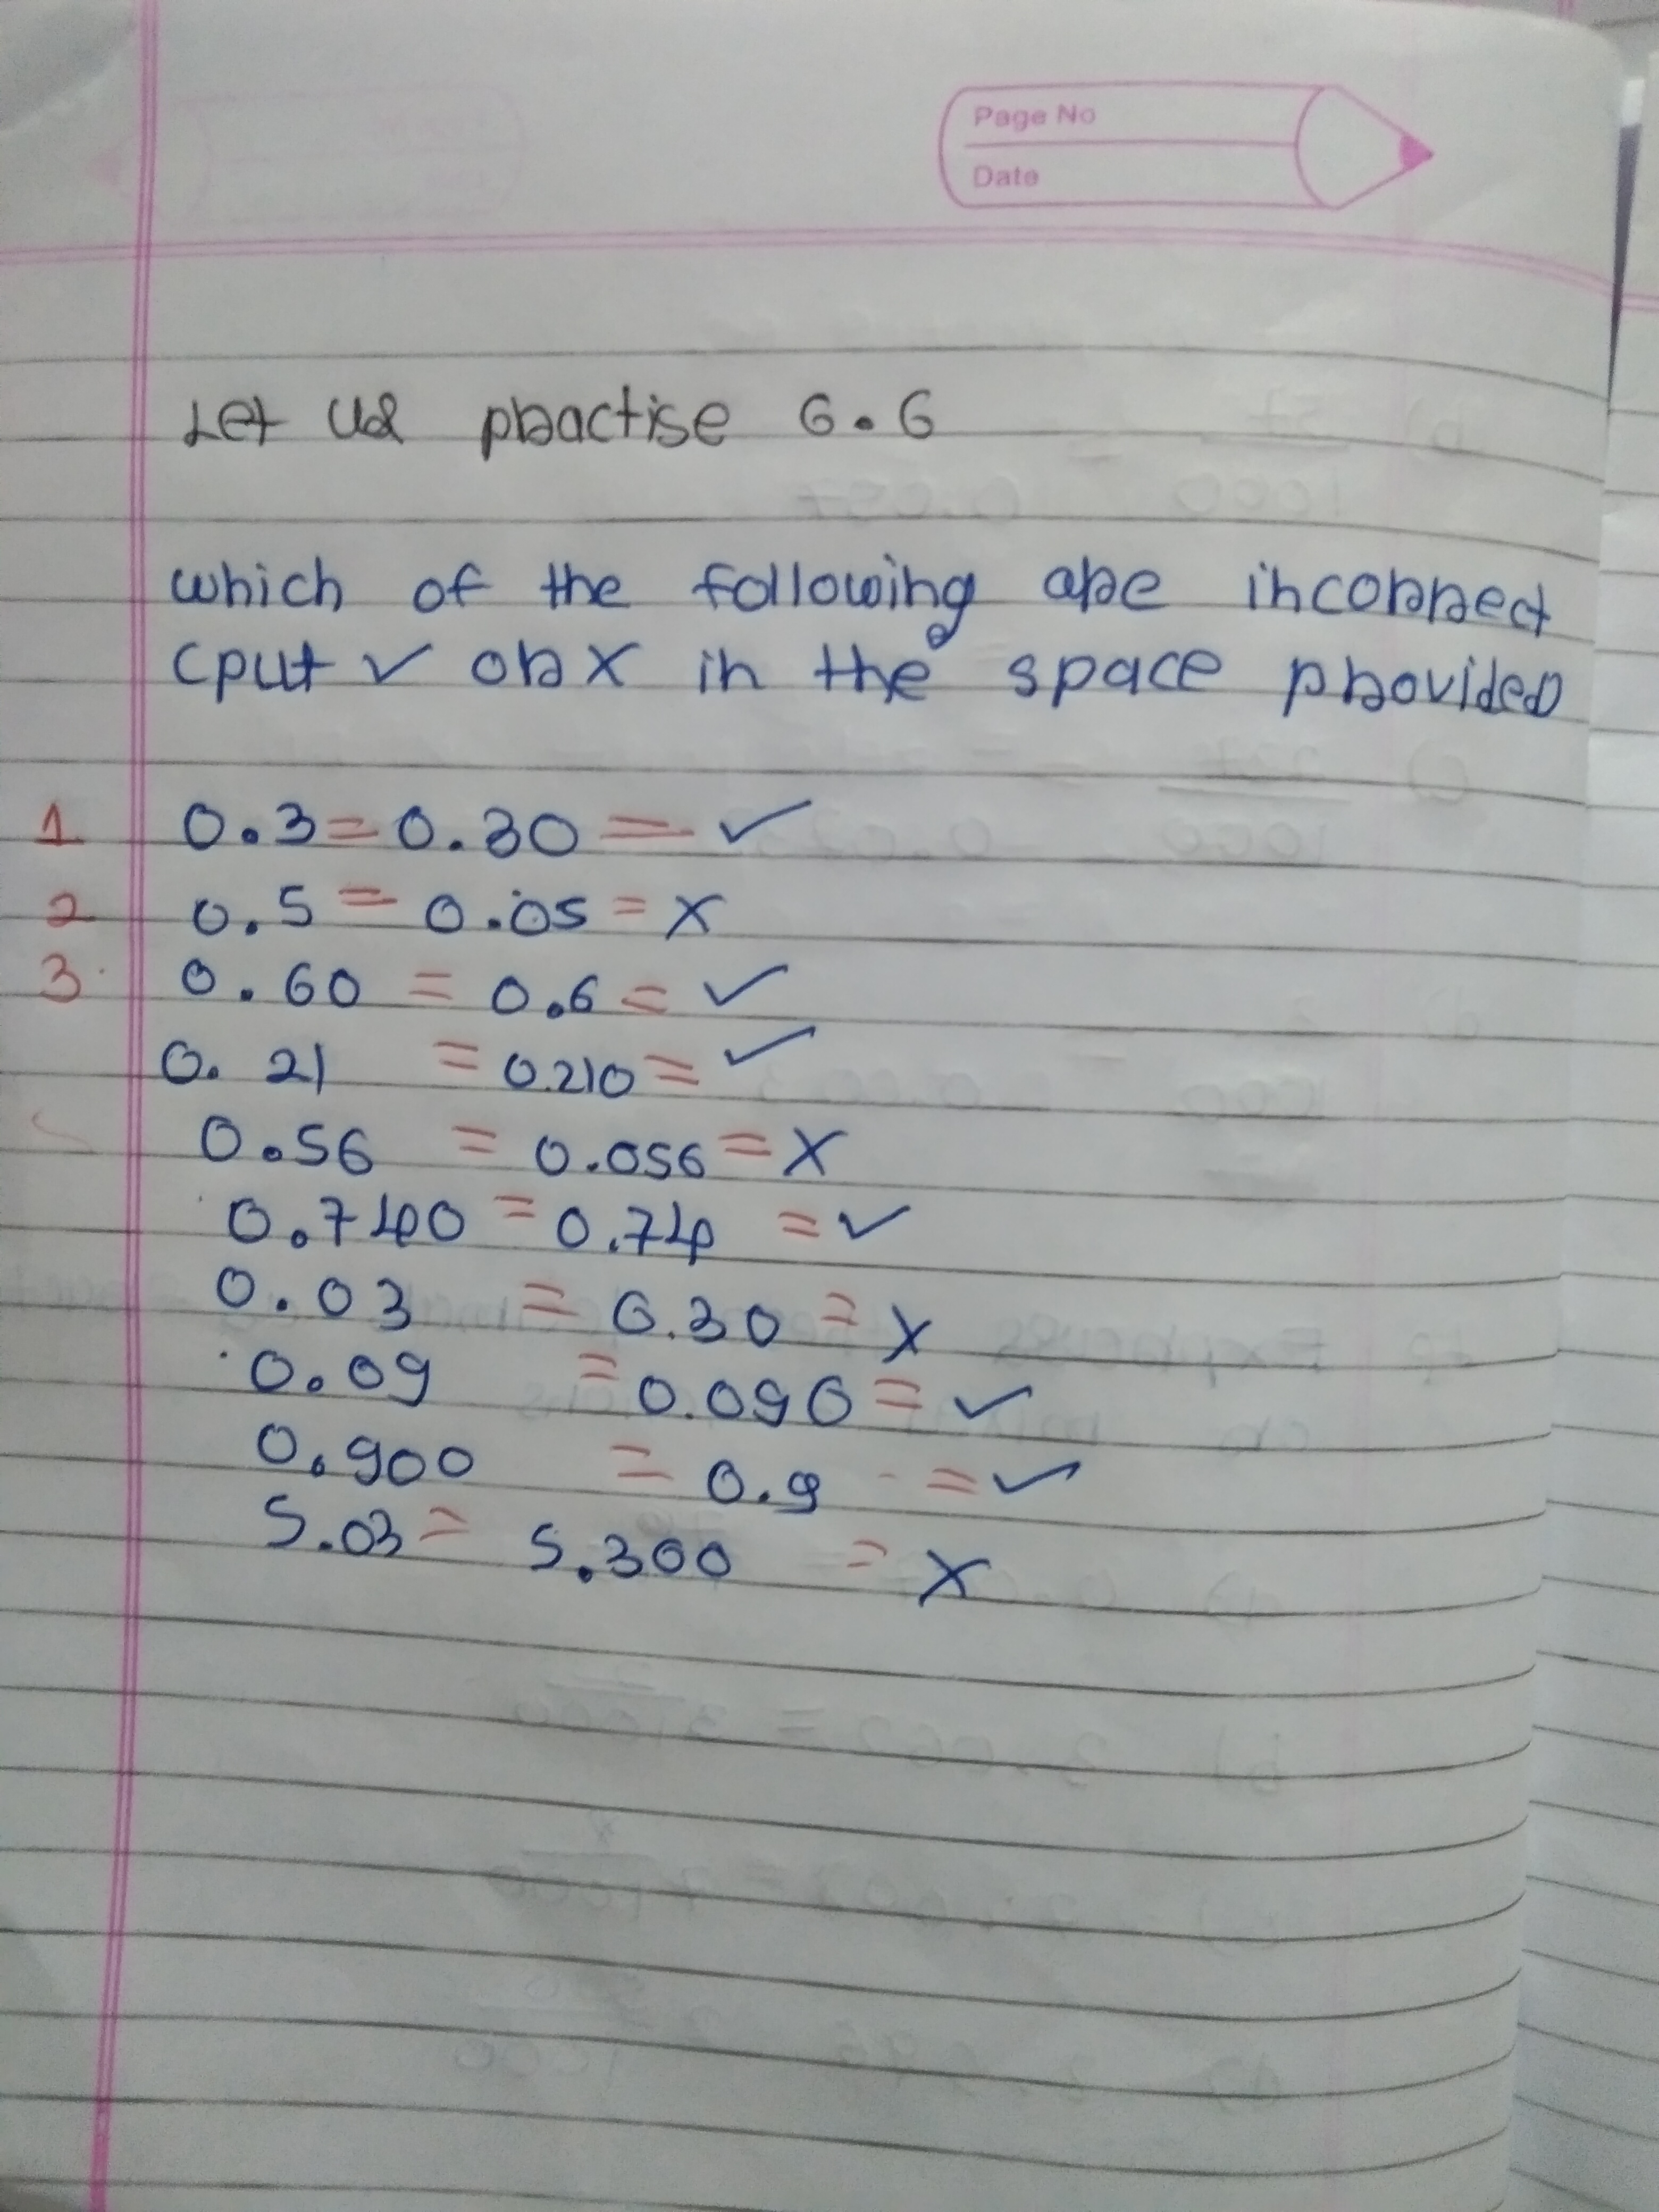 Page No
Date
Let us practise 6.6
which of the following are incorrect
(put ✓ or X in the space provided
1 0.3 = 0.30 = ✓
2 0.5 = 0.05 = X
3. 0.60 = 0.6 = ✓
0.21 = 0.210 = ✓
0.56 = 0.056 = X
0.740 = 0.74 = ✓
0.03 = 0.30 = X
0.09 = 0.090 = ✓
0.900 = 0.9 = ✓
5.03 = 5.300 = X